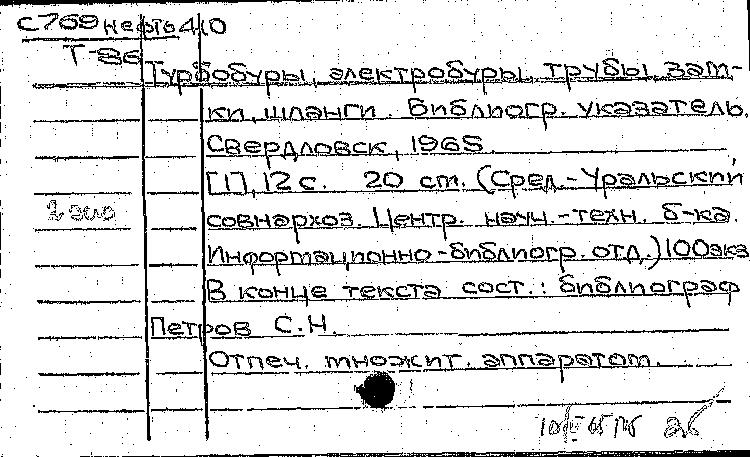 С769 Нефть 410
Т-86
Турбобуры, электробуры, трубы, зам-
ки, шланги. Библиогр. указатель.
Свердловск, 1965.
[1], 12 с. 20 cm. (Сред.-Уральский
2 экз
совнархоз. Центр. науч.-техн. б-ка.
Информационно-библиогр. отд.) 100 экз
В конце текста сост.: библиограф
Петров С.Н.
Отпеч. множит. аппаратом.